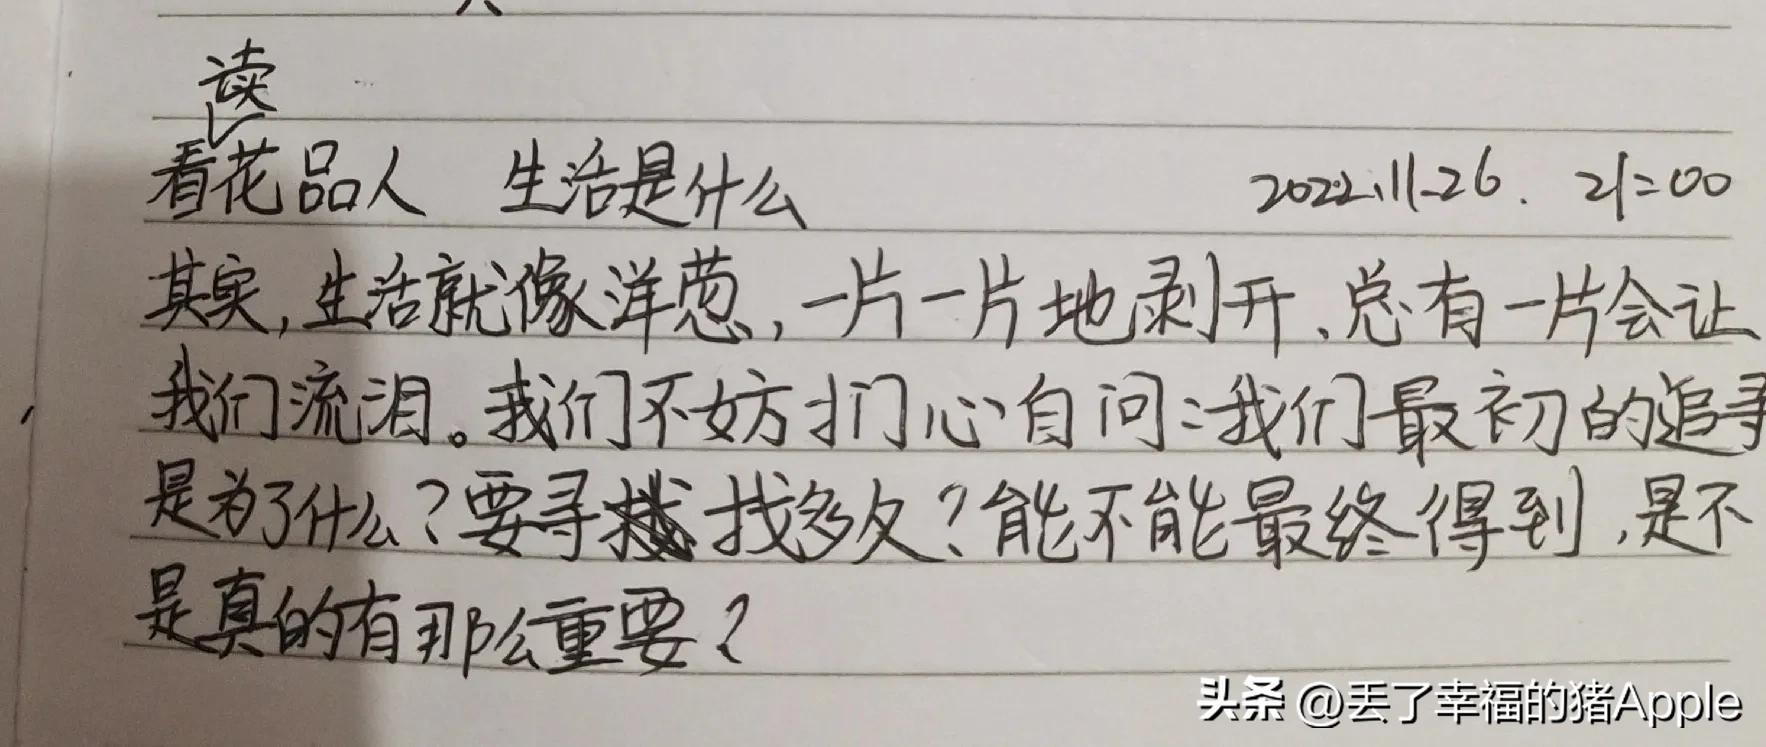 读
看花品人 生活是什么 2022.11.26. 21:00
其实,生活就像洋葱,一片一片地剥开、总有一片会让
我们流泪。我们不妨扪心自问:我们最初的追寻
是为了什么?要寻找多久?能不能最终得到,是不
是真的有那么重要?
头条 @丢了幸福的猪Apple